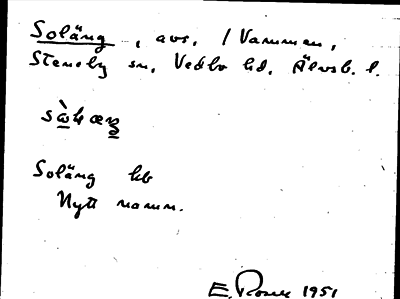 Soläng, avs., / Vammen,
Steneby sn, Vedbo hd, Älvsb. l.
Soläng hb
Nytt namn.
1951